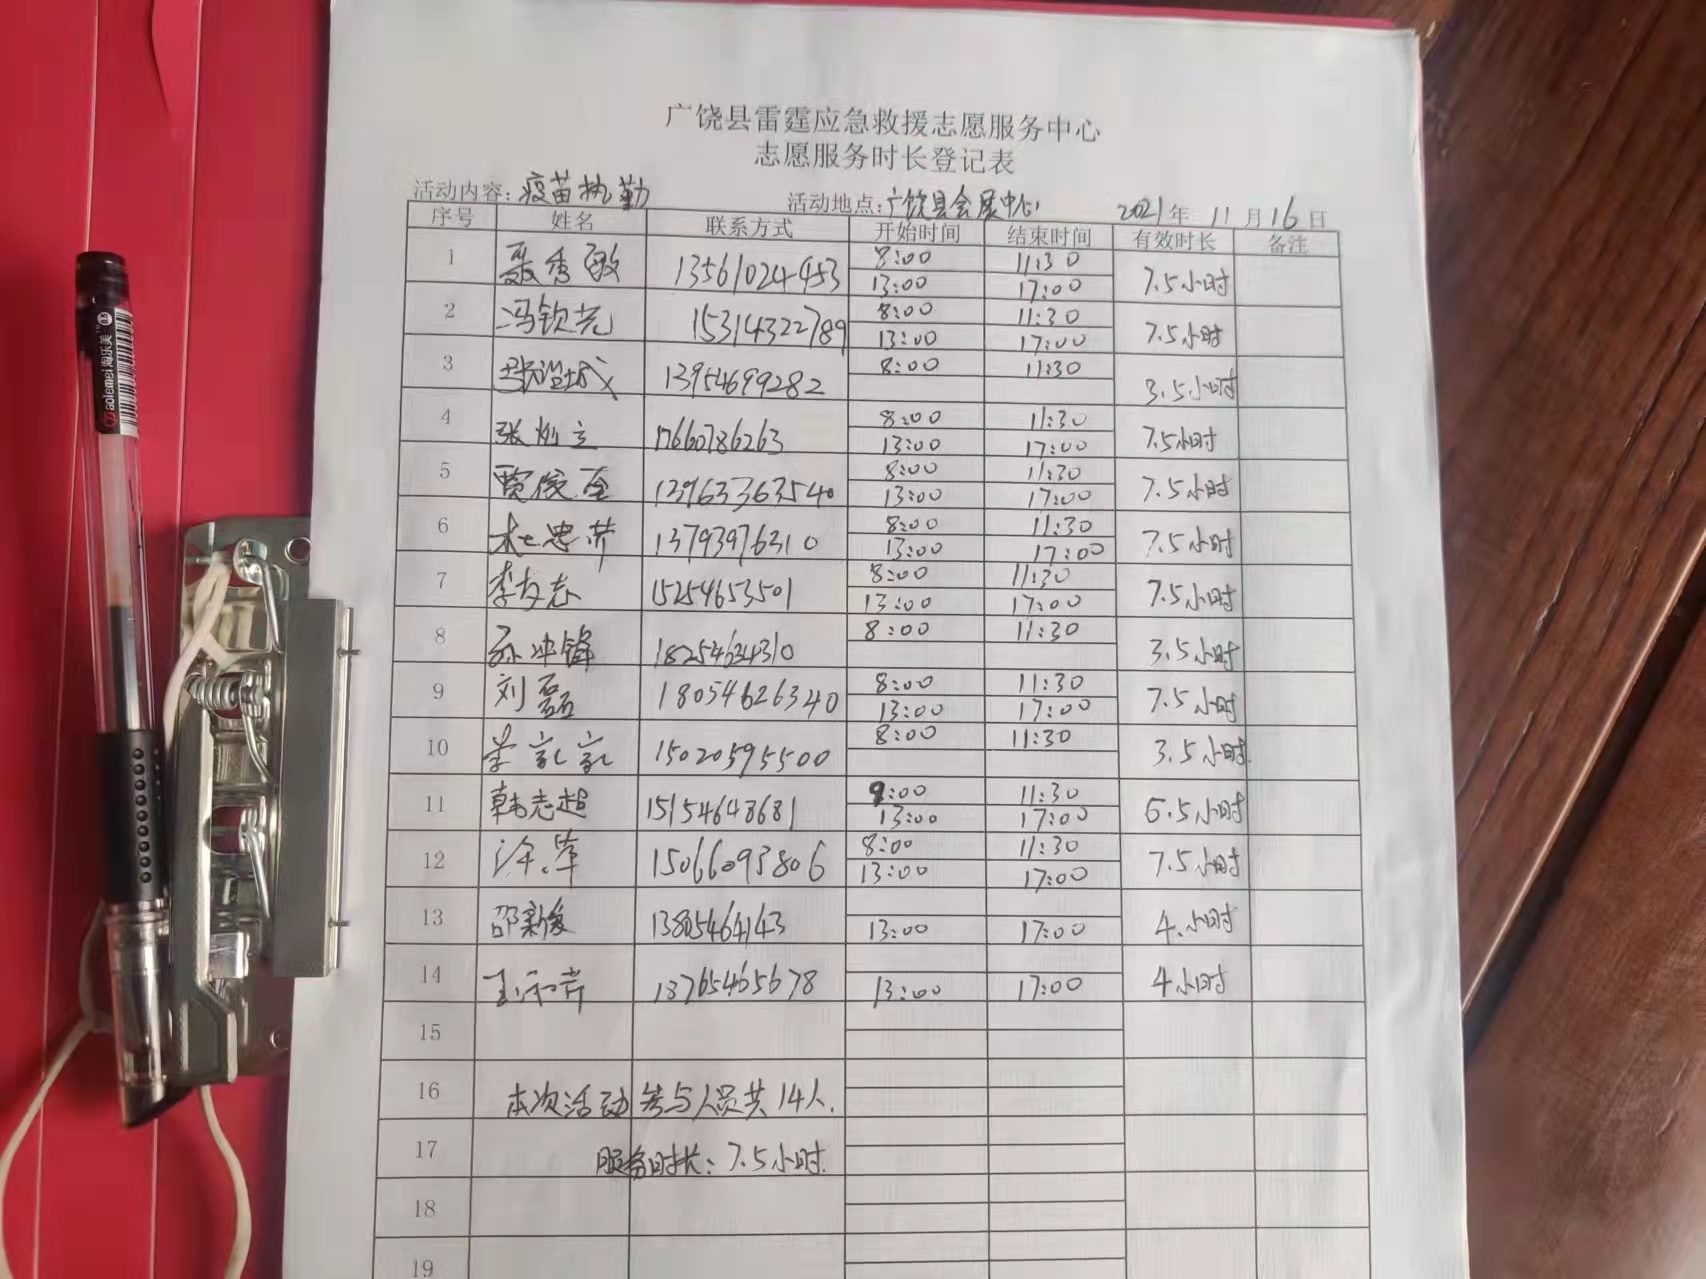 广饶县雷霆应急救援志愿服务中心
志愿服务时长登记表
活动内容：疫苗执勤 活动地点：广饶县会展中心 2021年 11月16日
序号 姓名 联系方式 开始时间 结束时间 有效时长 备注
1 聂秀敏 13561024453 8:00 11:30 7.5小时
13:00 17:00
2 冯钦尧 15314322789 8:00 11:30 7.5小时
13:00 17:00
3 13954699282 8:00 11:30 3.5小时
4 张灿立 17660786263 8:00 11:30 7.5小时
13:00 17:00
5 贾俊至 13963363540 8:00 11:30 7.5小时
13:00 17:00
6 杜忠芹 13793976310 8:00 11:30 7.5小时
13:00 17:00
7 李友志 15254653501 8:00 11:30 7.5小时
13:00 17:00
8 孙冲锋 18254624310 8:00 11:30 3.5小时
9 刘磊 18054626340 8:00 11:30 7.5小时
13:00 17:00
10 15020595500 8:00 11:30 3.5小时
11 韩志超 15154648681 9:00 11:30 6.5小时
13:00 17:00
12 15066093806 8:00 11:30 7.5小时
13:00 17:00
13 邵新俊 13805464143 13:00 17:00 4.小时
14 18765465678 13:00 17:00 4小时
15
16 本次活动参与人员共14人.
17 服务时长：7.5小时.
18
19
aolemei 淘乐美